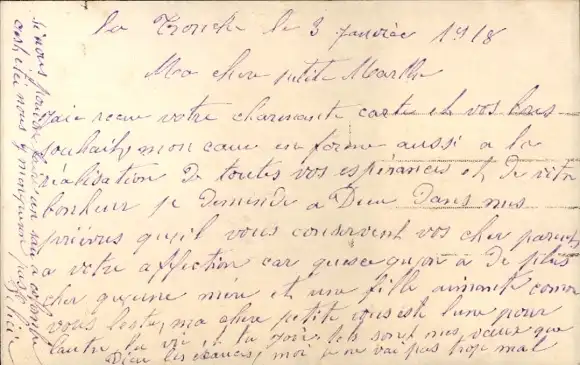 la Tronche le 3 janvier 1918
Ma cher petite Marthe
Jaie recue votre charmante carte et vos bons
souhaits, mon cœur en forme aussi a la
réalisation de toutes vos espérances et de votre
bonheur je demende a Dieu dans mes
prières qu'il vous conservent vos cher parent
a votre affection car quesequ'on à de plus
cher qu'une mère et une fille aimante comme
vous lestes, ma cher petite vous est lune pour
lautre la vie et la joie tels sont mes vœux que
Dieu les exauces, moi je ne vai pas trop mal
si nous